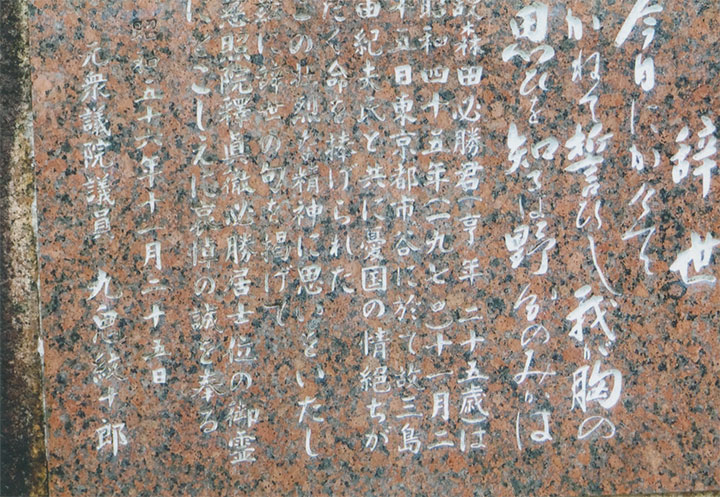 辞世
今日にかけて
かねて誓ひし我が胸の
思ひを知るは野分のみかは
故森田必勝君(享年 二十五歳)は
昭和四十五年(一九七〇)十一月二
十五日東京都市谷に於て故三島
由紀夫氏と共に憂国の情絶ちが
たく命を捧げられた
この壮烈な精神に思いをいたし
茲に辞世の句を掲げて
慈照院釋真徹必勝居士位の御霊
にとこしえに哀悼の誠を奉る
昭和五十六年十一月二十五日
元衆議院議員 九鬼紋十郎